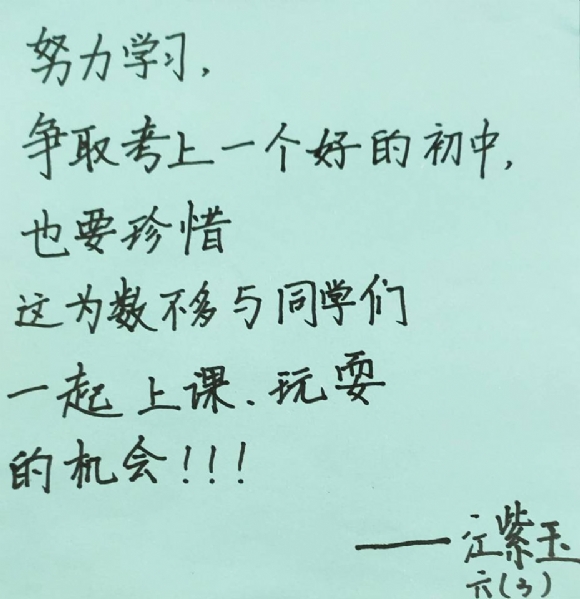 努力学习,
争取考上一个好的初中,
也要珍惜
这为数不多与同学们
一起上课、玩耍
的机会!!!
——江紫玉
六(3)